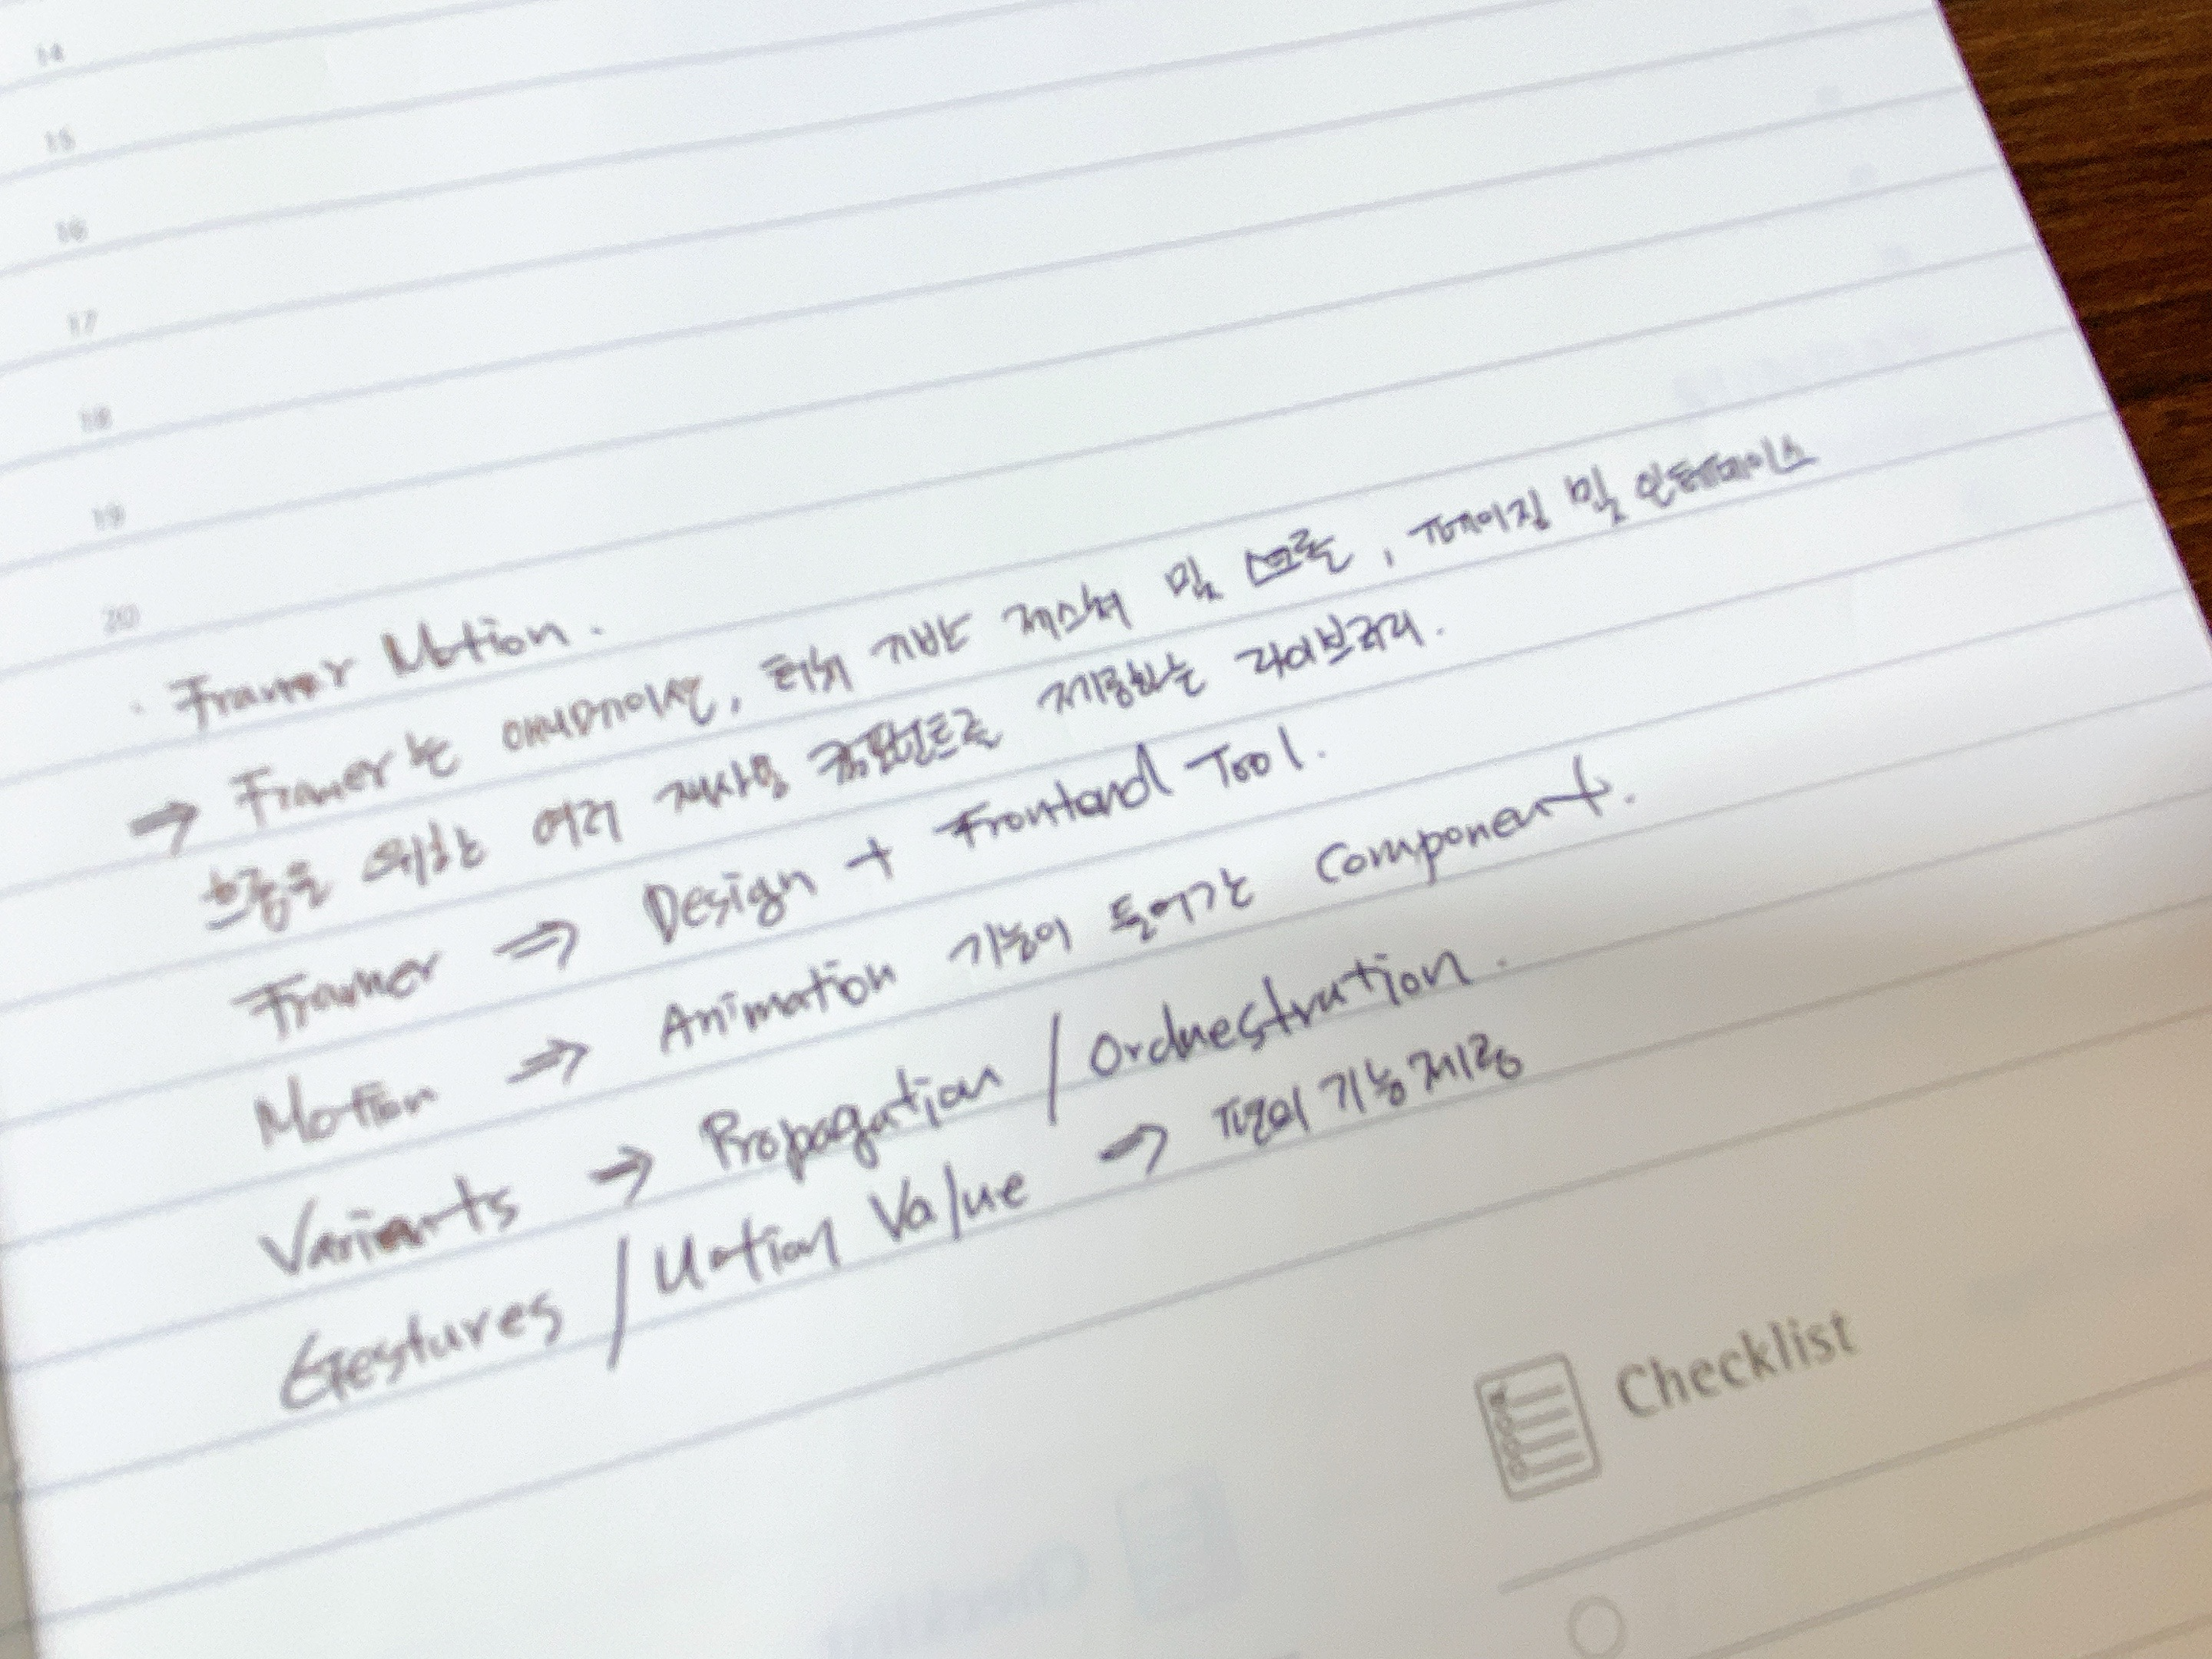 14
15
16
17
18
19
20
· Framer Motion.
→ Framer는 애니메이션, 터치 기반 제스쳐 및 스크롤, 페이징 및 인터페이스
흐름을 위한 여러 재사용 컴포넌트를 제공하는 라이브러리.
Framer ⇒ Design + Frontend Tool.
Motion ⇒ Animation 기능이 들어가는 Component.
Variants → Propagation / Orchestration.
Gestures / Motion Value → 편의 기능 제공
Checklist